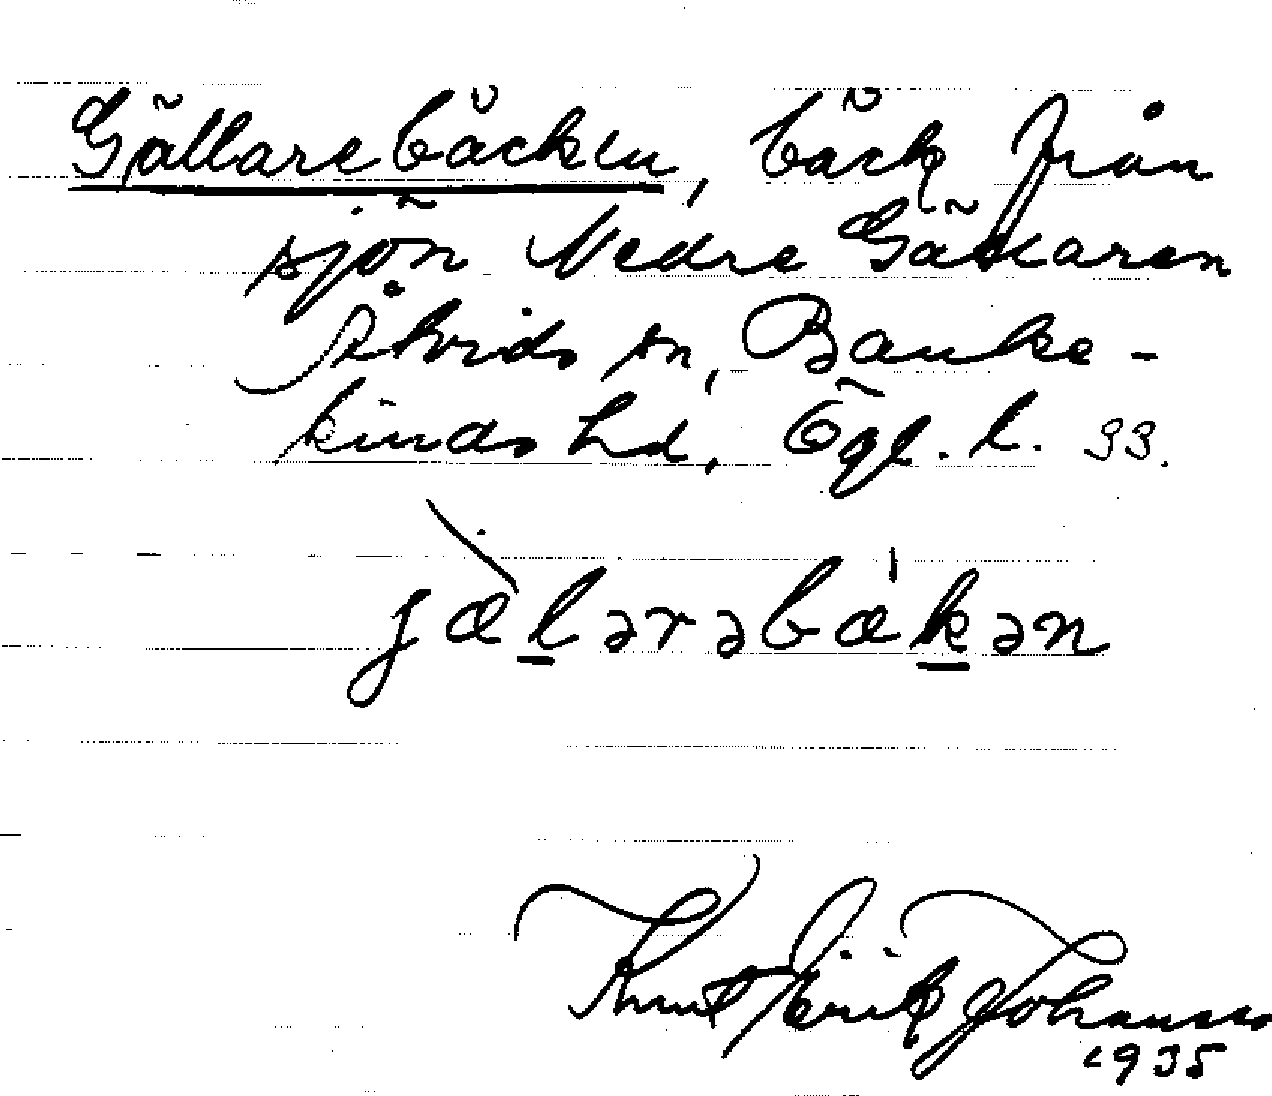 Gällarebäcken, bäck från
sjön Nedre Gällaren
Åtvids sn, Banke-
kinds hd, Ögl. l. 33.
jæ̀lərəbækən
Knut Erik Johansson
1935